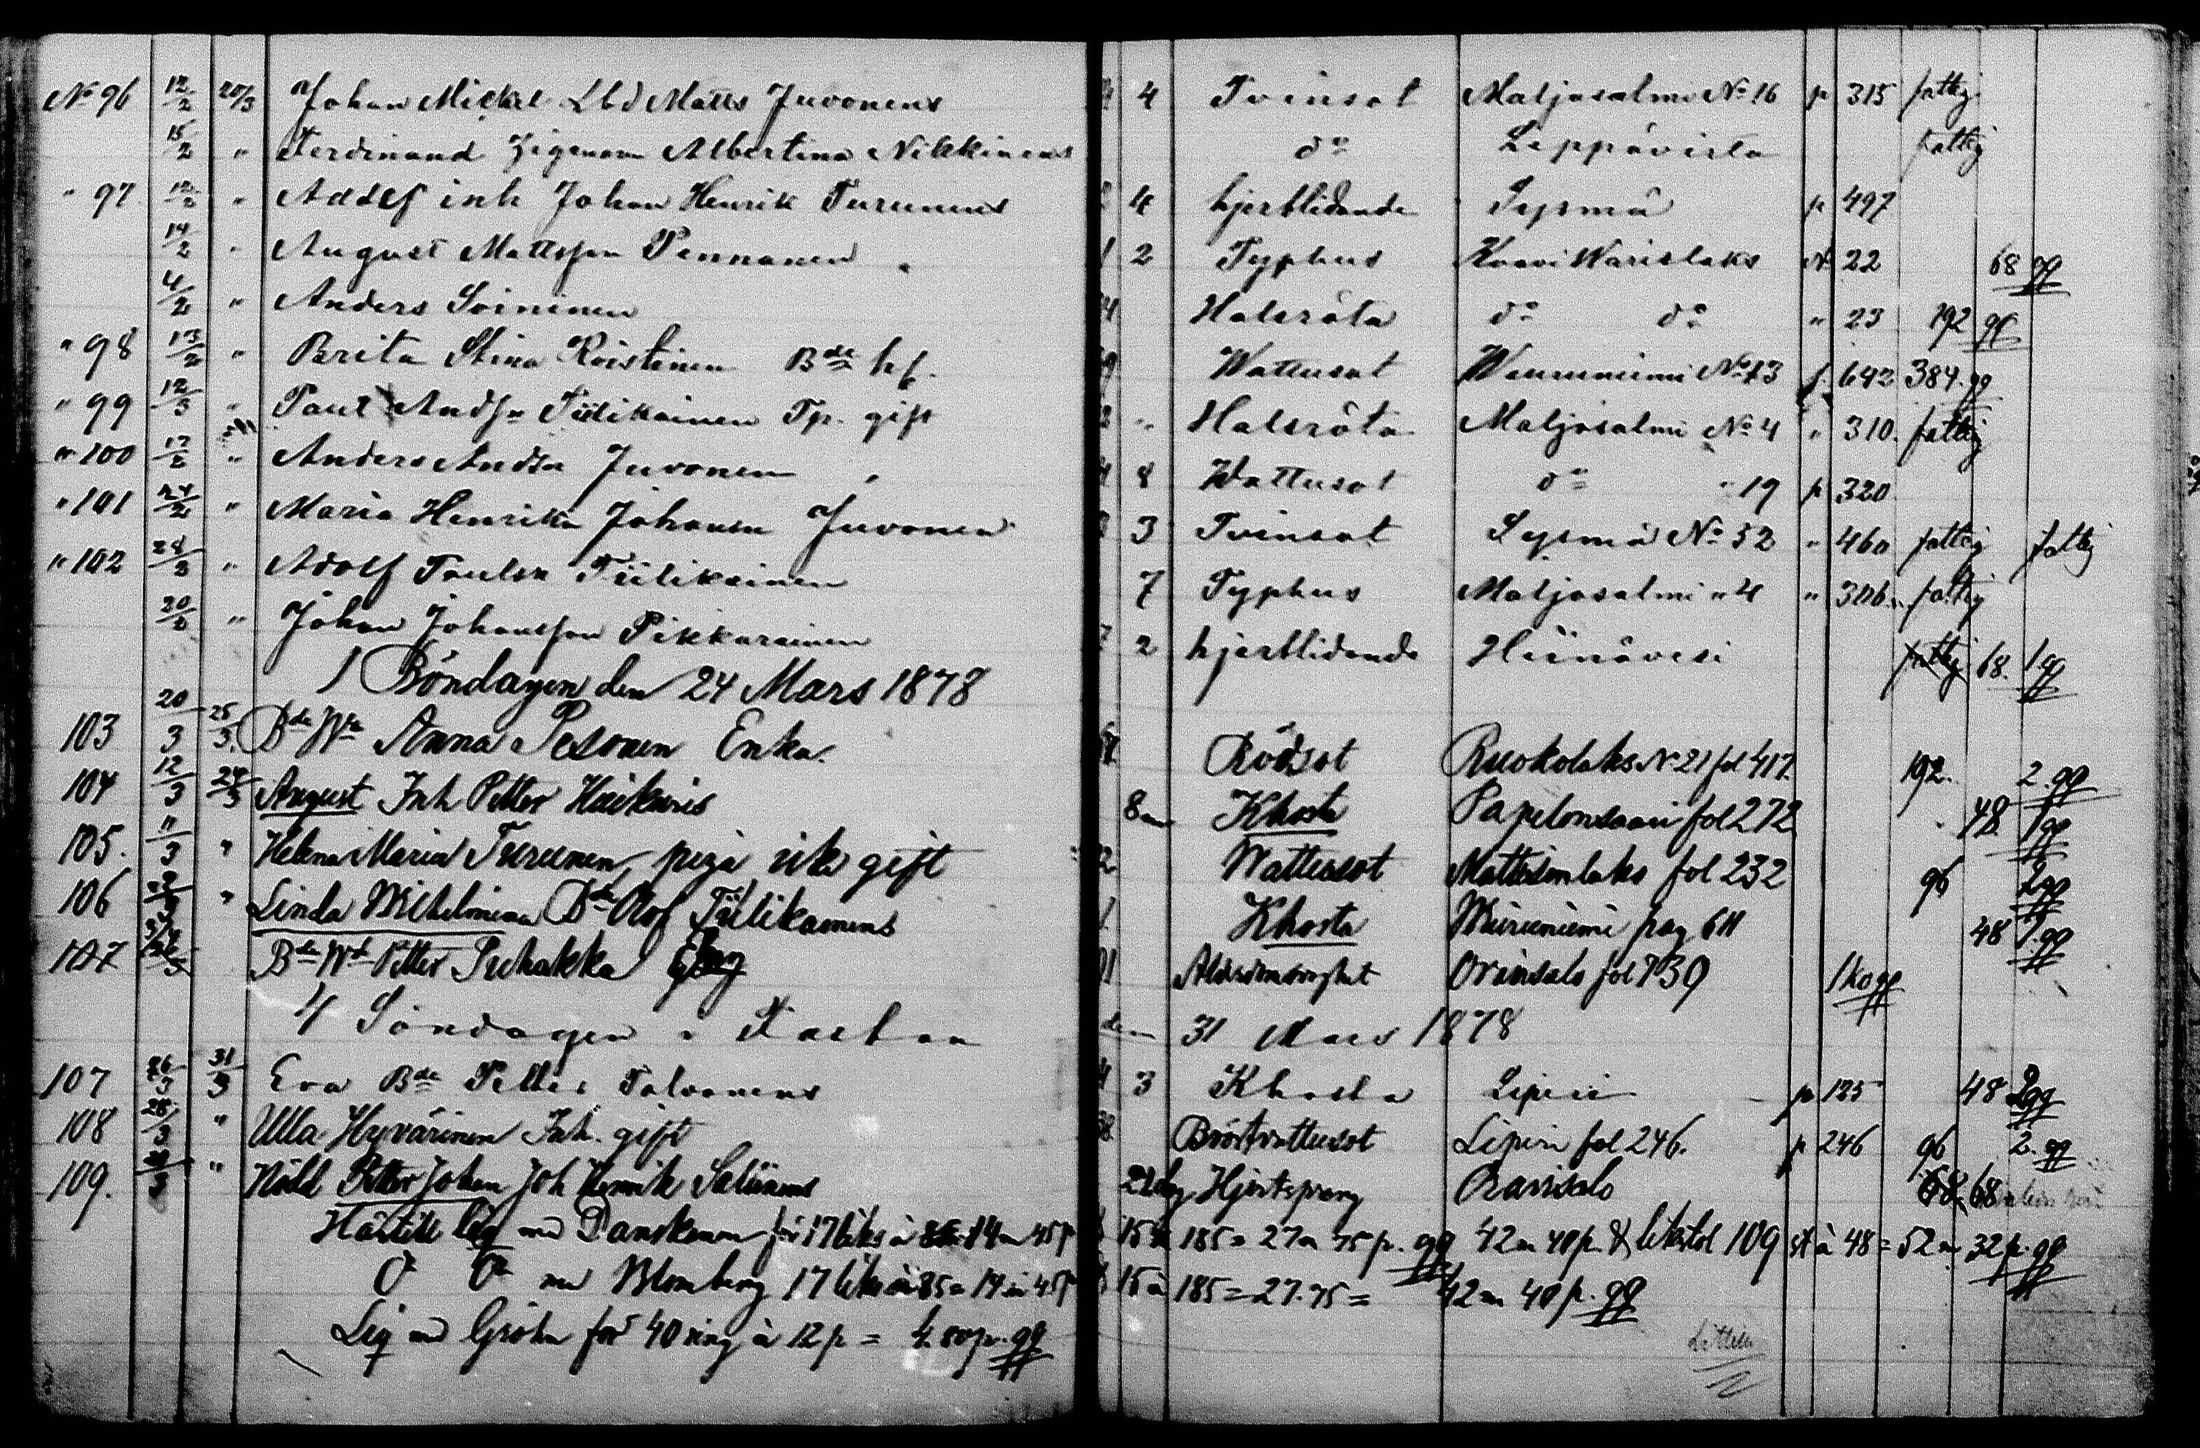 No 96 12/2 20/3 Johan Mickel Lbd Matts Juvonens 4 Tvinsot Maljasalmi No 16 p 315 fattig
15/2 " Ferdinand Albertina Nikkinens do Leppävirta fattig
" 97 12/2 " Adolf inh Johan Henrik Turunens 4 hjertlidande Sysmä p 497
14/2 " August Mattsson Pennanen 2 Typhus Kaavi Warislaks N 22 68 qq
4/2 " Anders Soininen Halsröta do do " 23 192 qq
" 98 13/2 " Brita Stina Koistinen Bde hf. Wattusot No 13 f. 642 384. qq
" 99 12/3 " Paul Andsn Tiilikainen Tp. gift " Halsröta Maljasalmi No 4 " 310. fattig
" 100 17/2 " Anders Andsn Juvonen 8 Wattusot do " 19 p 320
" 101 24/2 " Maria Henrika Johansn Juvonen 3 Tvinsot Sysmä No 32 " 460 fattig fattig
" 102 28/2 " Adolf Paulsn Tiilikainen 7 Typhus Maljasalmi " 4 " 306. fattig
20/2 " Johan Johansson Pikkarainen 2 hjertlidande Heinävesi fattig 68. 1 qq
1 Böndagen den 24 Mars 1878
103 20/3 25/3. Bde Wa Anna Pesonen Enka. Rödsot Ruokolaks N 21 fol 417. 192. 2. qq
104 12/3 24/3 August Inh Petter Haikaris 8 m Khosta Papelonsaari fol 272 48. 1 qq
105. 11/3 " Helena Maria Turunen, piga gift Wattusot Mattisenlaks fol 232 96 2 qq
106 " Linda Wilhelmina Bde Olof Tiilikainens Khosta pag 611 48 1. qq
107 Bde Wd Petter Puhakka Ålderdomsvaghet fol 739 1 ko qq
4 Söndagen i Fastan den 31 Mars 1878
107 26/3 31/3 Eva Bde Petter Tolvanens 3 Khosta Liperi p 125 48 2 qq
108 28/3 " Ulla Hyvärinen Inh. gift Bröstvattusot Liperi fol 246. p 246 96 2. qq
109. " Petter Johan Joh Henrik 21 dg Hjertsprång 68 68
Liq med Danskanen för 17 liks à 14 m 45 p 15 185 = 27 m 75 p. qq 42 m 40 p. & likstol 109 st à 48 = 52 m 32 p. qq
do do med Blomberg 17 liks à 85 = 14 m 45 p 15 à 185 = 27.75 = 42 m 40 p. qq
Liq med Gröhn för 40 ring à 12 p = 4. 80 p. qq